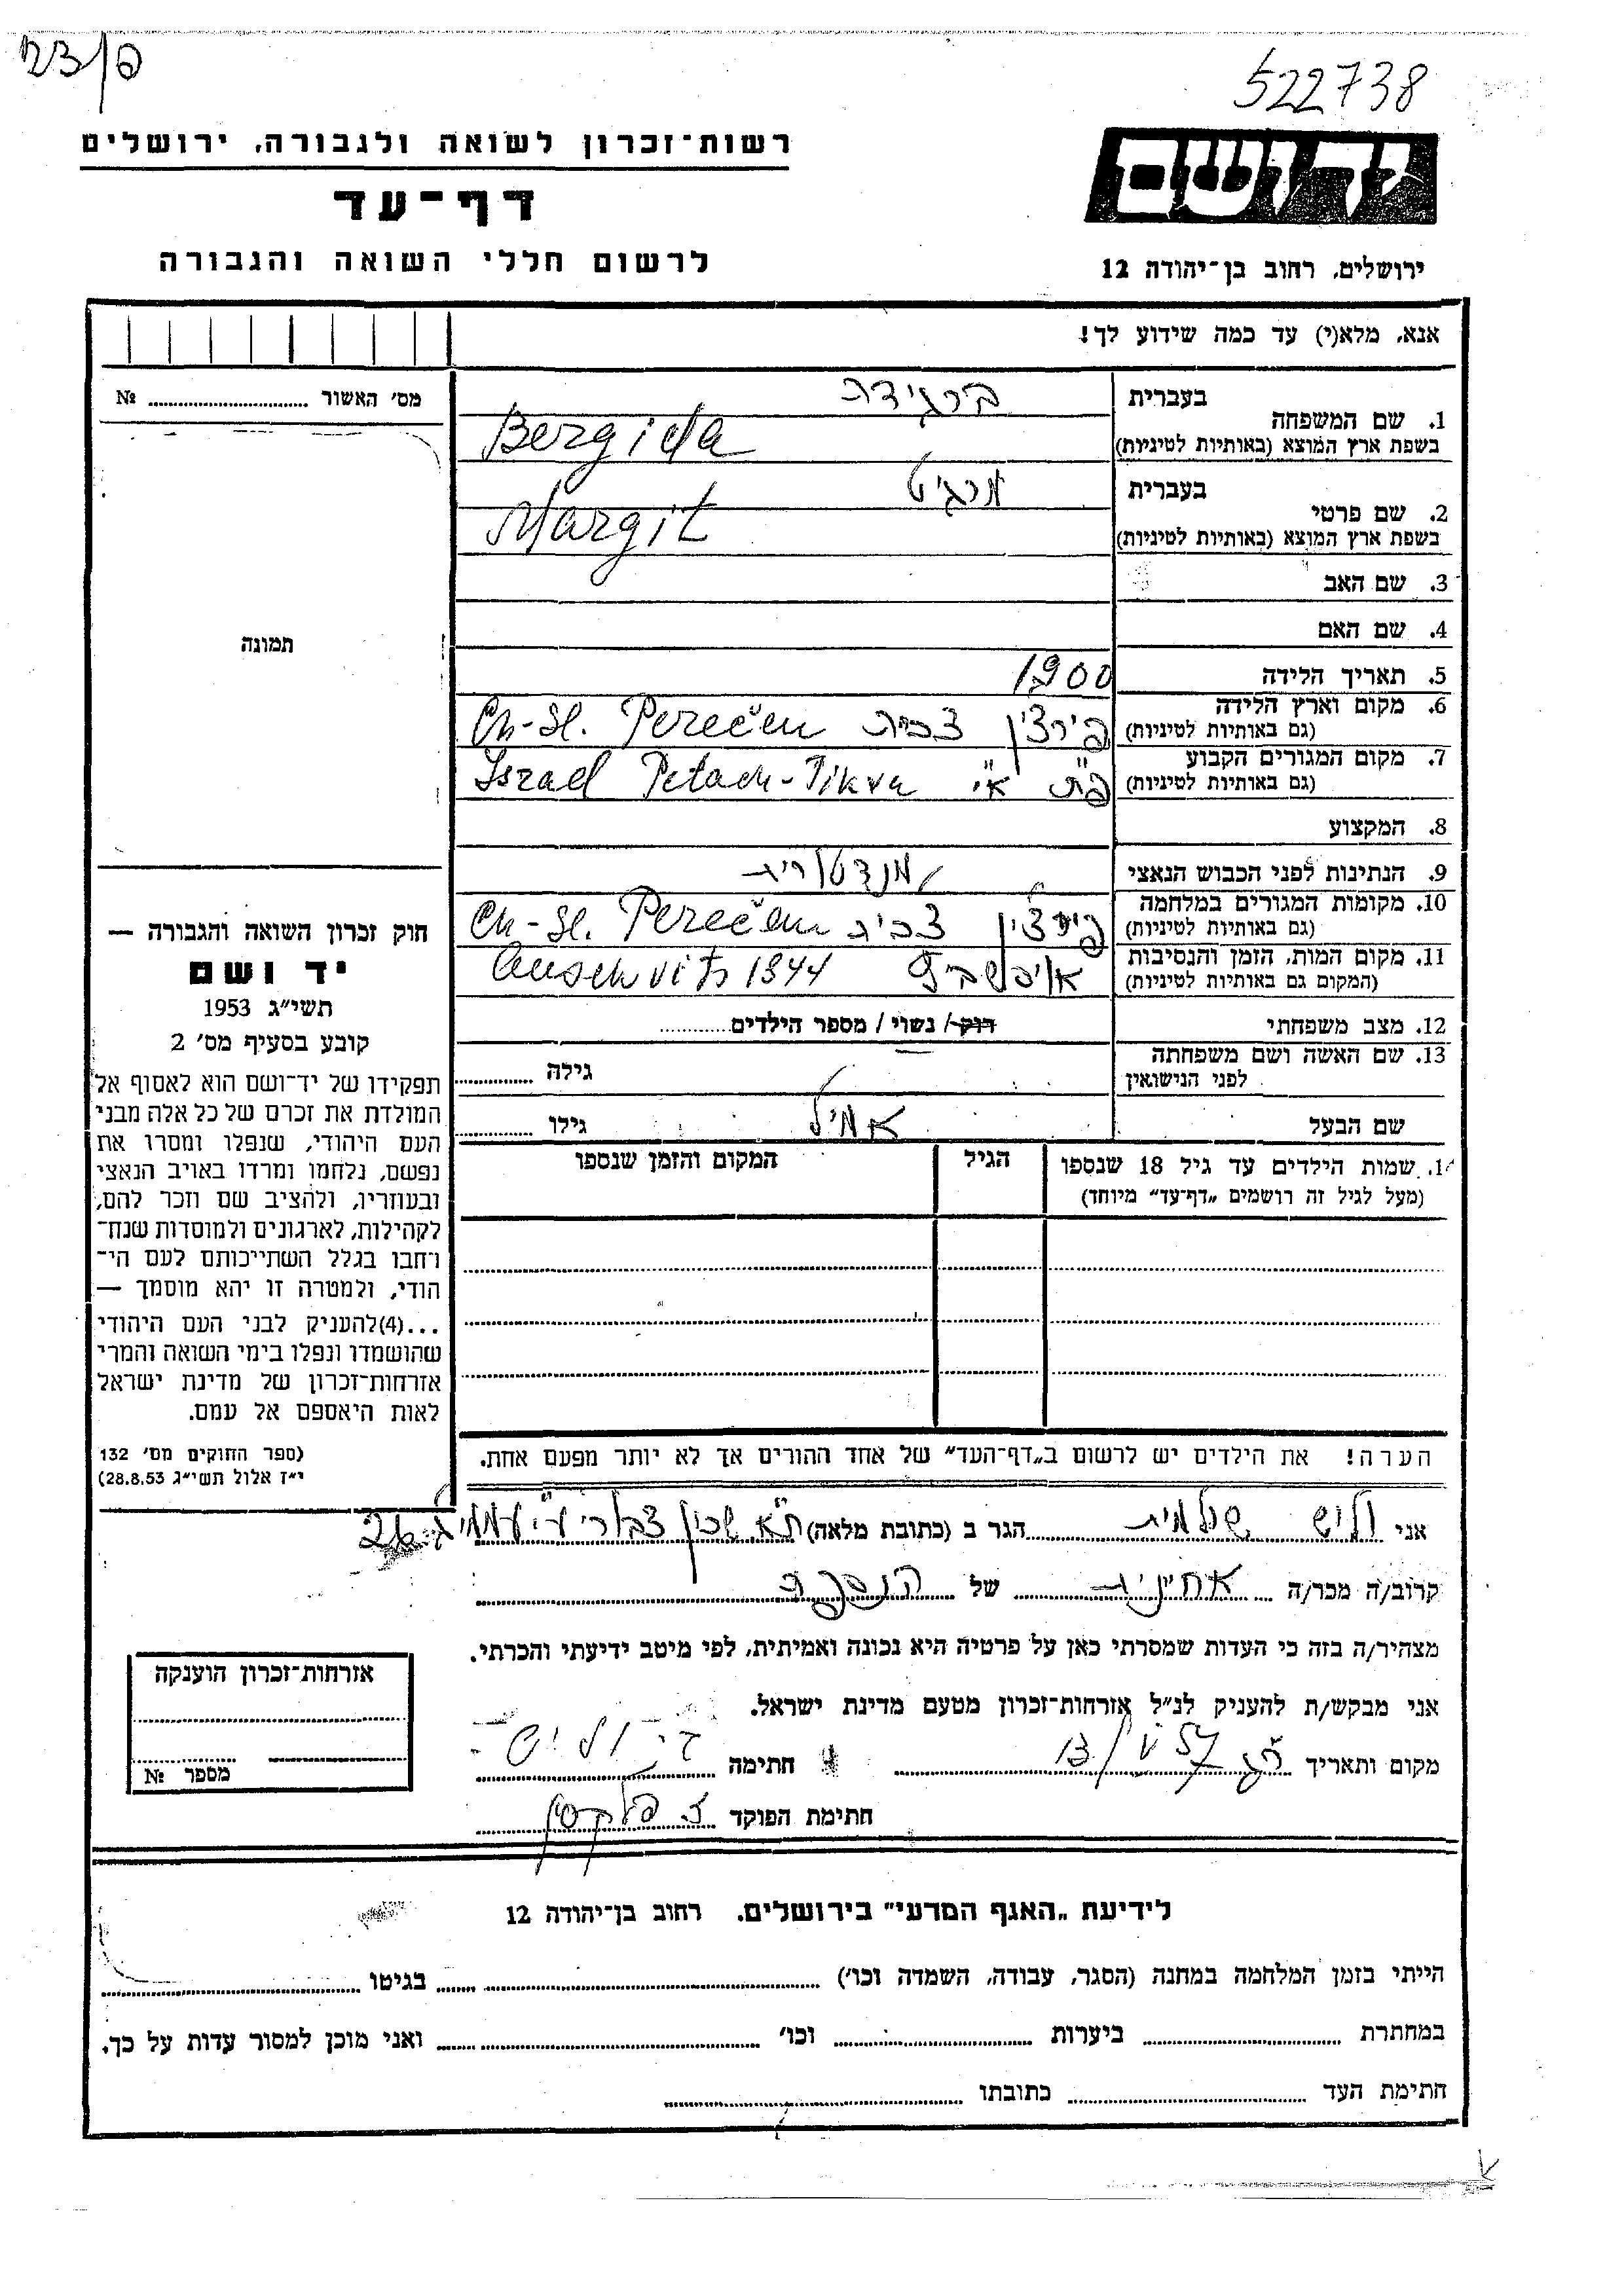 522738
יד ושם
ירושלים, רחוב בן־יהודה 12
רשות־זכרון לשואה ולגבורה, ירושלים
דף־עד
לרשום חללי השואה והגבורה
אנא, מלא(י) עד כמה שידוע לך!
מס׳ האשור № 
תמונה
בעברית
1. שם המשפחה
בשפת ארץ המוצא (באותיות לטיניות)
ברגידה
Bergida
בעברית
2. שם פרטי
בשפת ארץ המוצא (באותיות לטיניות)
מרגיט
Margit
3. שם האב
4. שם האם
5. תאריך הלידה 1900
6. מקום וארץ הלידה
(גם באותיות לטיניות)
פירצין צכית Ch-Sl. Perečen
7. מקום המגורים הקבוע
(גם באותיות לטיניות)
פ״ת א״י Israel Petach-Tikva
8. המקצוע
9. הנתינות לפני הכבוש הנאצי מנדטורית
10. מקומות המגורים במלחמה
(גם באותיות לטיניות)
פירצין Ch-Sl. Perečen
11. מקום המות, הזמן והנסיבות
(המקום גם באותיות לטיניות)
אוישביץ Auschvits 1944
12. מצב משפחתי רוק / נשוי / מספר הילדים
13. שם האשה ושם משפחתה
לפני הנישואין
גילה
שם הבעל אמיל גילו
14. שמות הילדים עד גיל 18 שנספו
(מעל לגיל זה רושמים „דף־עד״ מיוחד)
הגיל
המקום והזמן שנספו
חוק זכרון השואה והגבורה —
יד ושם
תשי״ג 1953
קובע בסעיף מס׳ 2
תפקידו של יד־ושם הוא לאסוף אל
המולדת את זכרם של כל אלה מבני
העם היהודי, שנפלו ומסרו את
נפשם, נלחמו ומרדו באויב הנאצי
ובעוזריו, ולהציב שם וזכר להם,
לקהילות, לארגונים ולמוסדות שנח־
רחבו בגלל השתייכותם לעם הי־
הודי, ולמטרה זו יהא מוסמך —
...(4)להעניק לבני העם היהודי
שהושמדו ונפלו בימי השואה והמרי
אזרחות־זכרון של מדינת ישראל
לאות היאספם אל עמם.
(ספר החוקים מס׳ 132
י״ז אלול תשי״ג 28.8.53)
הערה! את הילדים יש לרשום ב„דף־העד״ של אחד ההורים אך לא יותר מפעם אחת.
אני וליש שולמית הגר ב (כתובת מלאה) ת״א שכון 26
קרוב/ה מכר/ה אחינית של הנספה
מצהיר/ה בזה כי העדות שמסרתי כאן על פרטיה היא נכונה ואמיתית, לפי מיטב ידיעתי והכרתי.
אני מבקש/ת להעניק לנ״ל אזרחות־זכרון מטעם מדינת ישראל.
מקום ותאריך 13/V 57 חתימה
חתימת הפוקד
אזרחות־זכרון הוענקה
מספר №
לידיעת „האגף המדעי״ בירושלים, רחוב בן־יהודה 12
הייתי בזמן המלחמה במחנה (הסגר, עבודה, השמדה וכו׳) בגיטו
במחתרת ביערות וכו׳ ואני מוכן למסור עדות על כך.
חתימת העד כתובתו